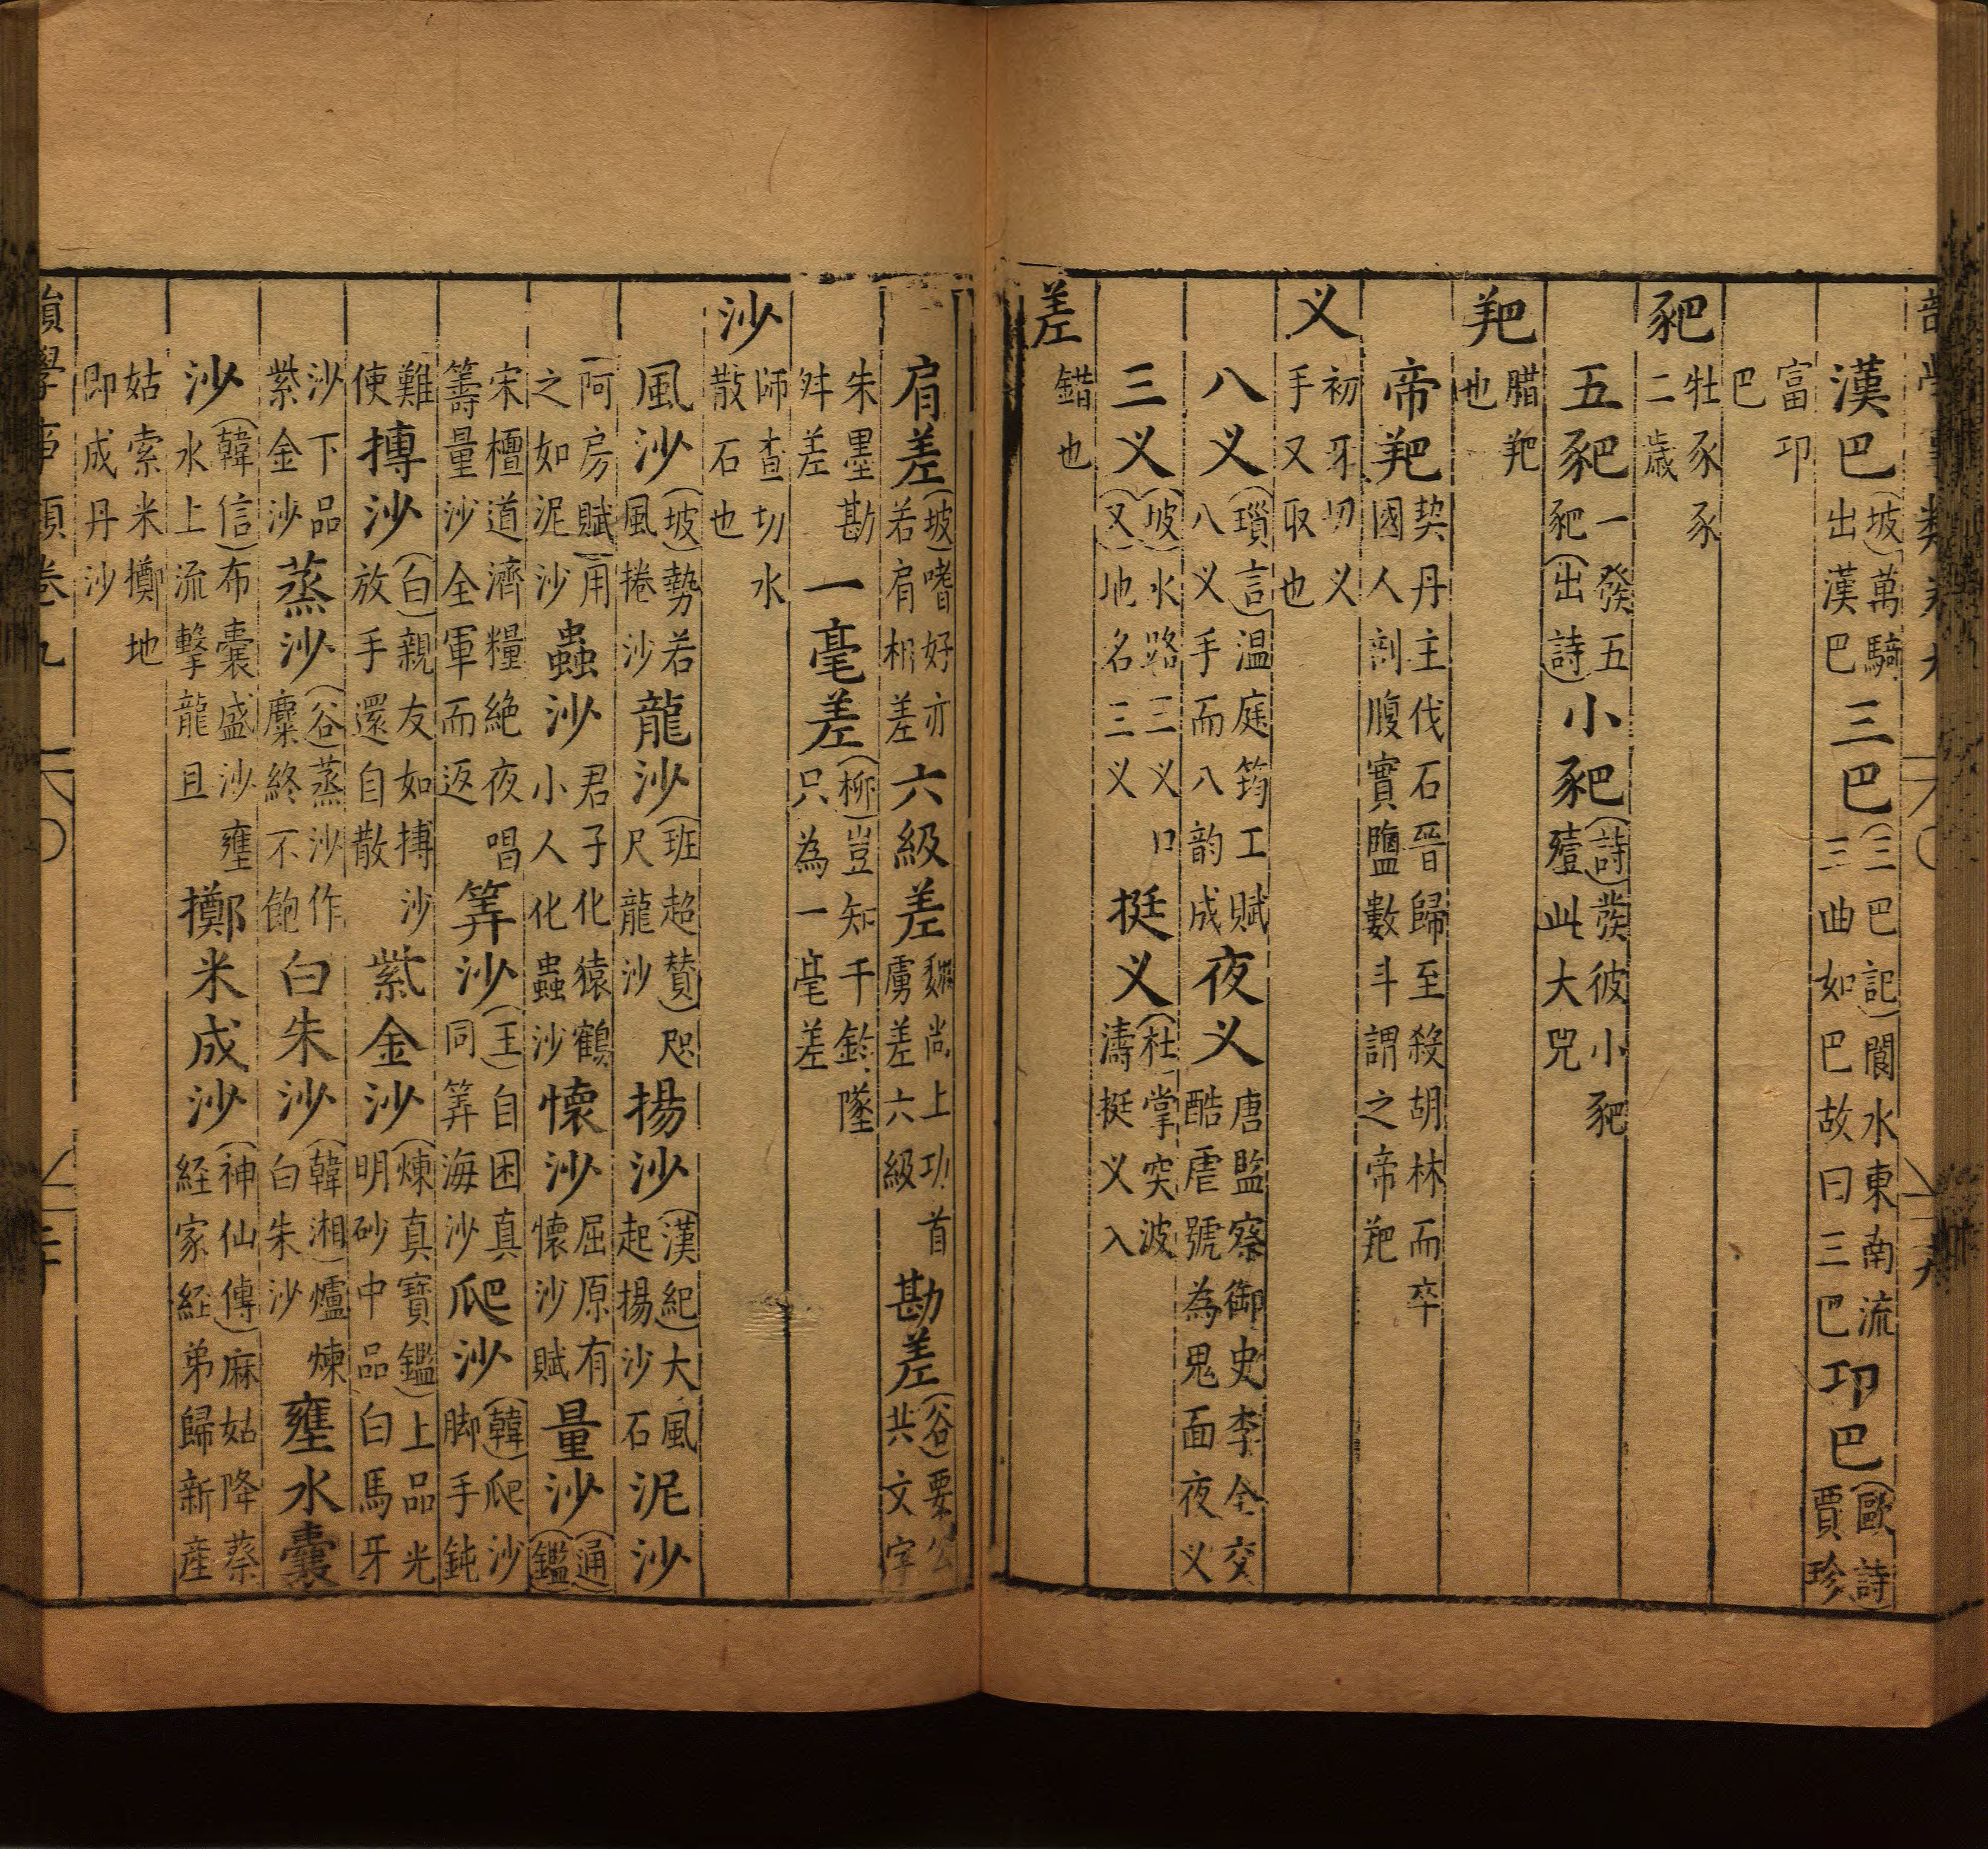 漢巴(坡)萬騎出漢巴三巴(三巴記)閬水東南流三曲如巴故曰三巴卭巴(歐詩)賈珍
富卭巴
豝牡豕豕二歳
五豝一發五豝(出詩)小豝(詩)發彼小豝殪此大兕
羓腊羓也
帝羓契丹主伐石晉歸至殺胡林而卒國人剖腹實鹽數斗謂之帝羓
义初牙切义手又取也
八义(瑣言)温庭筠工賦八义手而八韵成夜义唐監察御史李全交酷虐號為鬼面夜义
三义(坡)水路三义口(又)地名三义挺义(杜)掌突波濤挺义入
差錯也
肩差(坡)嗜好亦若肩相差六級差魏尚上功首虜差六級勘差(谷)要公共文字
朱墨勘舛差一毫差(柳)豈知千鈴墜只為一毫差
沙師查切水散石也
風沙(坡)勢若風捲沙龍沙(班超贊)咫尺龍沙揚沙(漢紀)大風起揚沙石泥沙
(阿房賦)用之如泥沙蟲沙君子化猿鶴小人化蟲沙懷沙屈原有懷沙賦量沙(通鑑)
宋檀道濟糧絶夜唱籌量沙全軍而返筭沙(王)自困真同筭海沙爬沙(韓)爬沙脚手鈍
難使摶沙(白)親友如摶沙放手還自散紫金沙(煉真寳鑑)上品光明砂中品白馬牙
沙下品紫金沙蒸沙(谷)蒸沙作麋終不飽白朱沙(韓湘)爐煉白朱沙壅水囊
沙(韓信)布囊盛沙壅水上流擊龍且擲米成沙(神仙傳)麻姑降蔡経家経弟歸新産
姑索米擲地即成丹沙